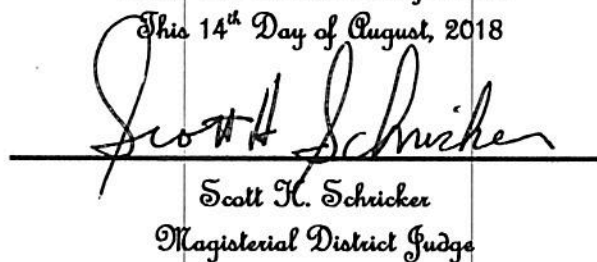 This 14th Day of August, 2018
Scott H Schricker
Scott H. Schricker
Magisterial District Judge